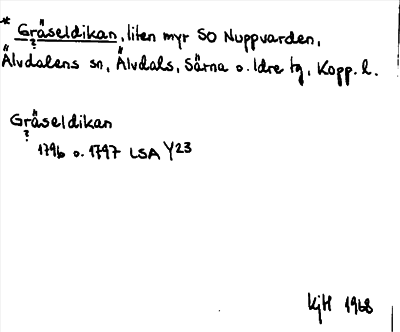 * Gräseldikan, liten myr SO Nuppvarden,
?
Älvdalens sn, Älvdals, Särna o. Idre tg, Kopp. l.
Gräseldikan
?
1796 o. 1797 LSA Y23
KjH 1968